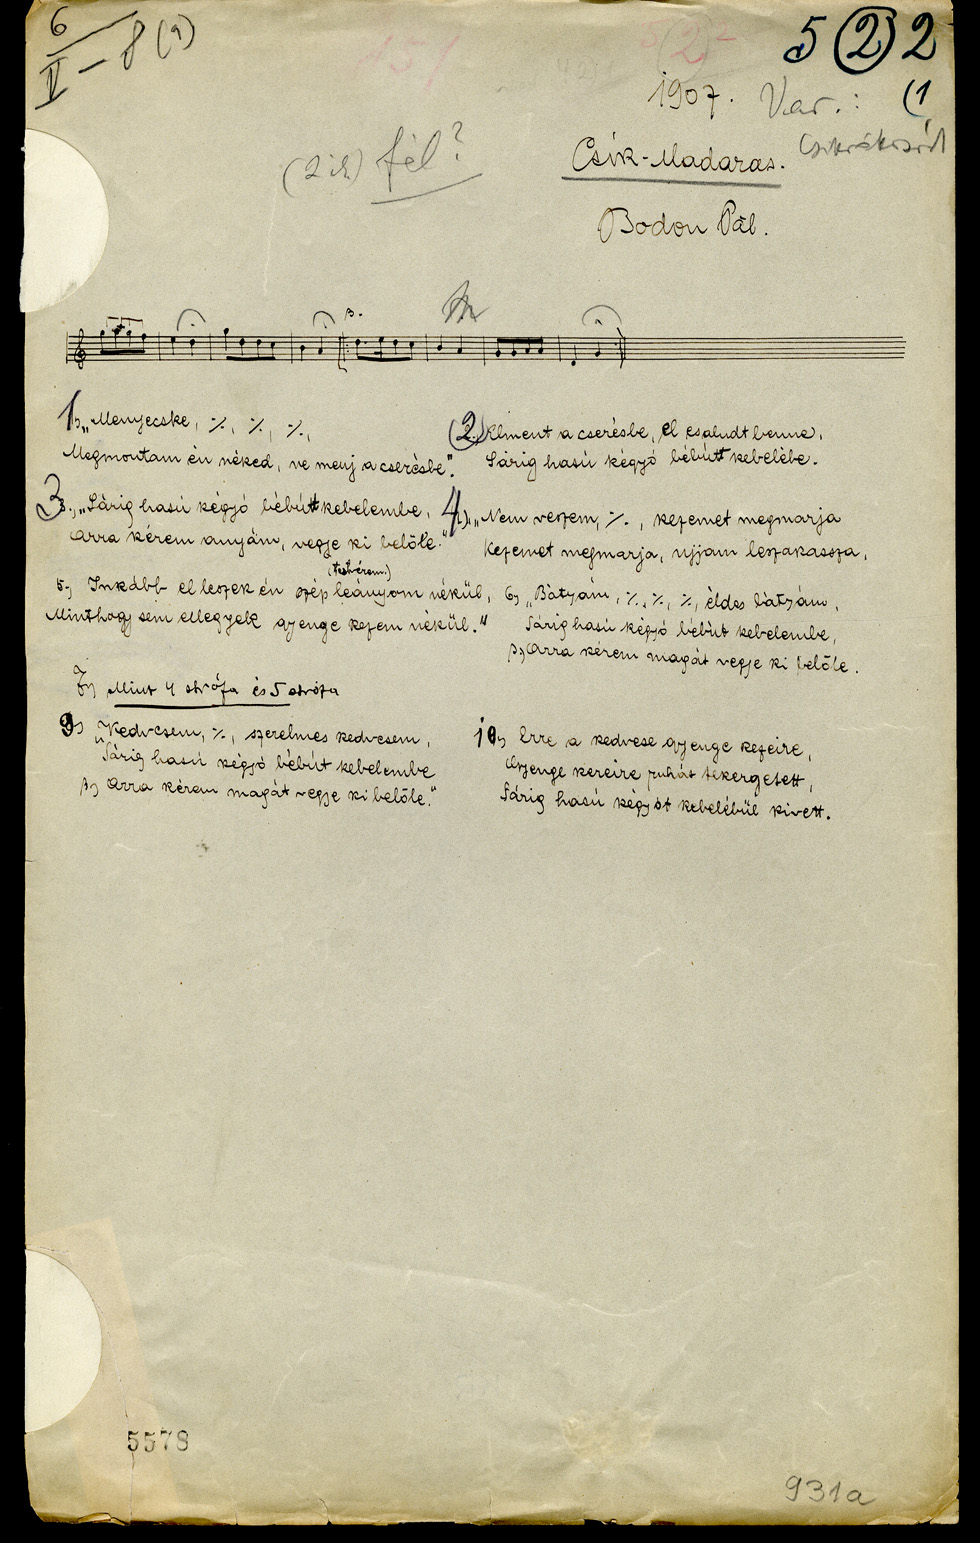 6
II – 8 (2)
5 (2) 2
1907. Var.: (1
(2 ik) fél?
Csík-Madaras.
Bodon Pál.
β.
1, „Menyecske, ·/·, ·/·, ·/·,
Megmontam én néked, ne menj a cserésbe".
(2.) Elment a cserésbe, el es aludt benne,
Sárig hasú kégyó bébútt kebelébe.
3., „Sárig hasú kégyó bébútt kebelembe,
Arra kérem anyám, vegye ki belőle."
4), „Nem veszem, ·/·, kezemet megmarja
Kezemet megmarja, ujjam leszakassza,
(testvérem)
5, Inkább el leszek én szép leányom nékül,
Minthogy sem ellegyek gyenge kezem nékül."
6, „Bátyám, ·/·, ·/·, ·/·, éldes bátyám,
Sárig hasú kégyó bébút kebelembe,
β, Arra kérem magát vegye ki belőle.
7, Mint 4 strófa és 5 strófa
9, „Kedvesem, ·/·, szerelmes kedvesem,
Sárig hasú kégyó bébút kebelembe
β, Arra kérem magát vegye ki belőle."
10, Erre a kedvese gyenge kezeire,
Gyenge kezeire ruhát tekergetett,
Sárig hasú kégyót kebelébül kivett.
5578
931a